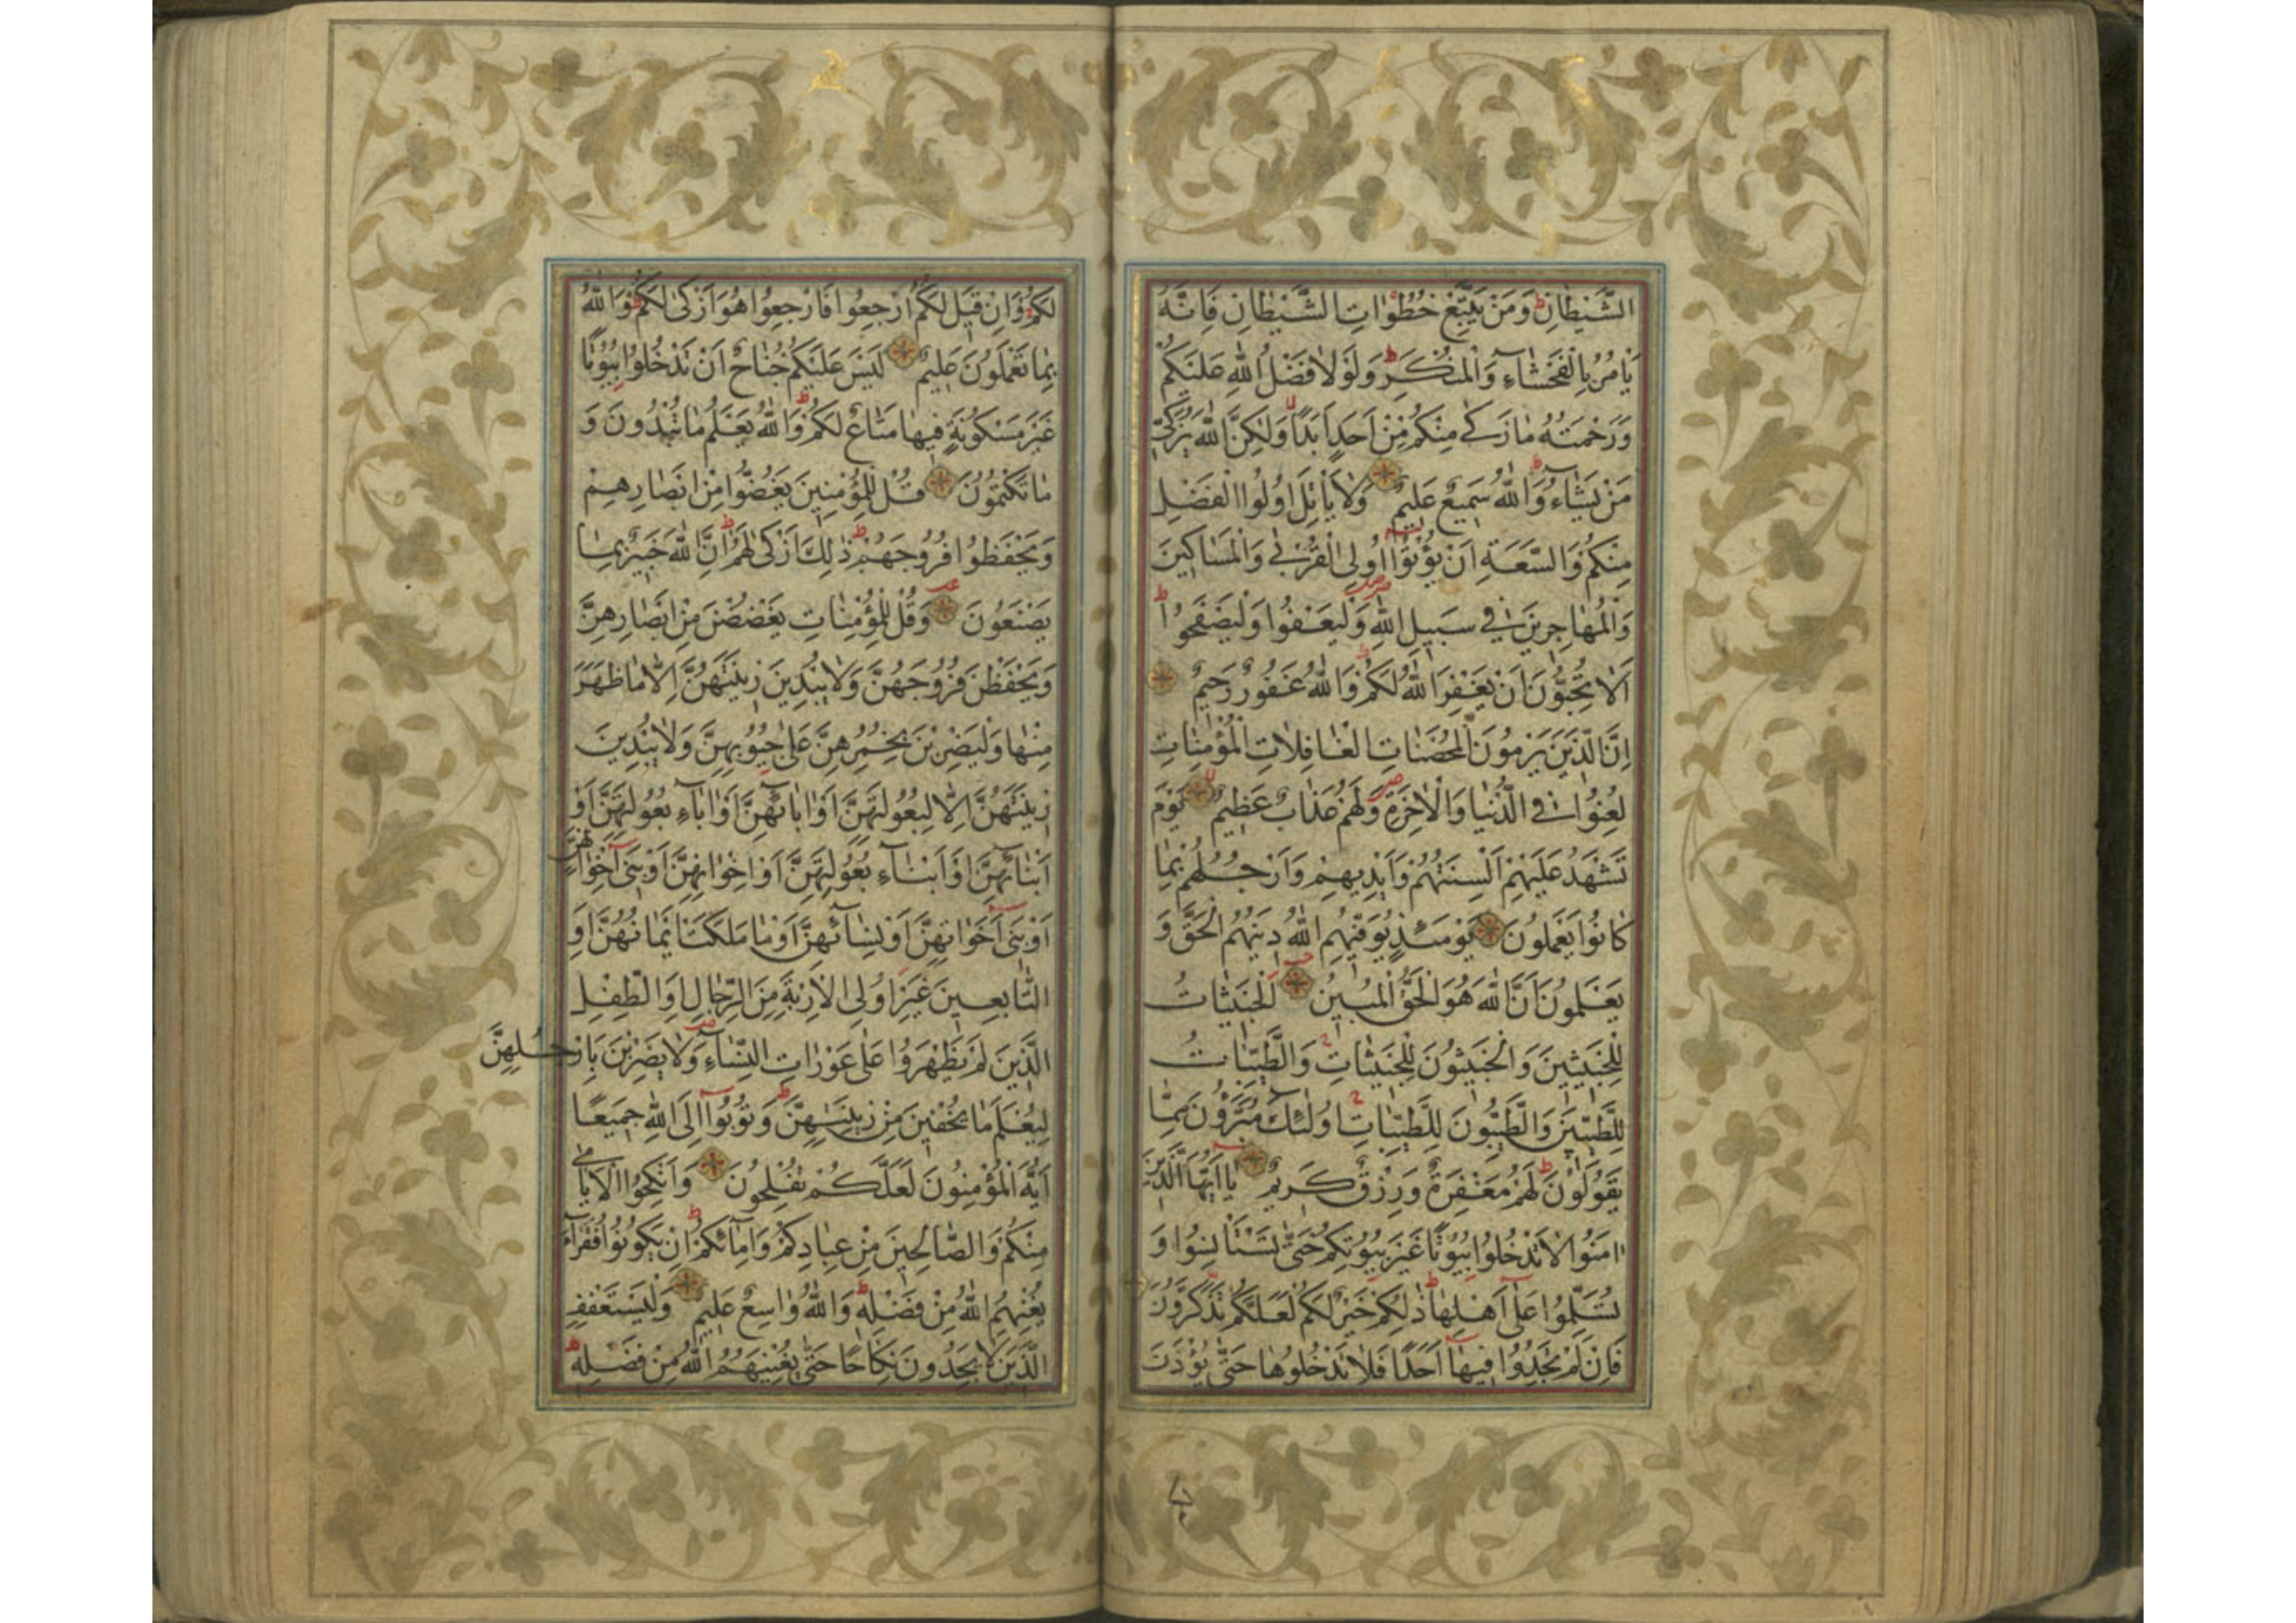 الشَّيْطَانِ وَمَنْ يَتَّبِعْ خُطُوَاتِ الشَّيْطَانِ فَاِنَّهُ
يَأْمُرُ بِالْفَحْشَاءِ وَالْمُنْكَرِ وَلَوْلَا فَضْلُ اللهِ عَلَيْكُمْ
وَرَحْمَتُهُ مَا زَكٰى مِنْكُمْ مِنْ اَحَدٍ اَبَدًا وَلٰكِنَّ اللهَ يُزَكّٖي
مَنْ يَشَاءُ وَاللهُ سَمِيعٌ عَلِيمٌ وَلَا يَأْتَلِ اُولُوا الْفَضْلِ
مِنْكُمْ وَالسَّعَةِ اَنْ يُؤْتُوا اُولِى الْقُرْبٰى وَالْمَسَاكِينَ
وَالْمُهَاجِرِينَ فِي سَبِيلِ اللهِ وَلْيَعْفُوا وَلْيَصْفَحُوا
اَلَا تُحِبُّونَ اَنْ يَغْفِرَ اللهُ لَكُمْ وَاللهُ غَفُورٌ رَحِيمٌ
اِنَّ الَّذِينَ يَرْمُونَ الْمُحْصَنَاتِ الْغَافِلَاتِ الْمُؤْمِنَاتِ
لُعِنُوا فِي الدُّنْيَا وَالْاٰخِرَةِ وَلَهُمْ عَذَابٌ عَظِيمٌ يَوْمَ
تَشْهَدُ عَلَيْهِمْ اَلْسِنَتُهُمْ وَاَيْدِيهِمْ وَاَرْجُلُهُمْ بِمَا
كَانُوا يَعْمَلُونَ يَوْمَئِذٍ يُوَفّٖيهِمُ اللهُ دِينَهُمُ الْحَقَّ وَ
يَعْلَمُونَ اَنَّ اللهَ هُوَ الْحَقُّ الْمُبِينُ اَلْخَبِيثَاتُ
لِلْخَبِيثِينَ وَالْخَبِيثُونَ لِلْخَبِيثَاتِ وَالطَّيِّبَاتُ
لِلطَّيِّبِينَ وَالطَّيِّبُونَ لِلطَّيِّبَاتِ اُولٰئِكَ مُبَرَّؤُنَ مِمَّا
يَقُولُونَ لَهُمْ مَغْفِرَةٌ وَرِزْقٌ كَرِيمٌ يَا اَيُّهَا الَّذِينَ
اٰمَنُوا لَا تَدْخُلُوا بُيُوتًا غَيْرَ بُيُوتِكُمْ حَتّٰى تَسْتَأْنِسُوا وَ
تُسَلِّمُوا عَلٰى اَهْلِهَا ذٰلِكُمْ خَيْرٌ لَكُمْ لَعَلَّكُمْ تَذَكَّرُونَ
فَاِنْ لَمْ تَجِدُوا فِيهَا اَحَدًا فَلَا تَدْخُلُوهَا حَتّٰى يُؤْذَنَ
لَكُمْ وَاِنْ قِيلَ لَكُمُ ارْجِعُوا فَارْجِعُوا هُوَ اَزْكٰى لَكُمْ وَاللهُ
بِمَا تَعْمَلُونَ عَلِيمٌ لَيْسَ عَلَيْكُمْ جُنَاحٌ اَنْ تَدْخُلُوا بُيُوتًا
غَيْرَ مَسْكُونَةٍ فِيهَا مَتَاعٌ لَكُمْ وَاللهُ يَعْلَمُ مَا تُبْدُونَ وَ
مَا تَكْتُمُونَ قُلْ لِلْمُؤْمِنِينَ يَغُضُّوا مِنْ اَبْصَارِهِمْ
وَيَحْفَظُوا فُرُوجَهُمْ ذٰلِكَ اَزْكٰى لَهُمْ اِنَّ اللهَ خَبِيرٌ بِمَا
يَصْنَعُونَ وَقُلْ لِلْمُؤْمِنَاتِ يَغْضُضْنَ مِنْ اَبْصَارِهِنَّ
وَيَحْفَظْنَ فُرُوجَهُنَّ وَلَا يُبْدِينَ زِينَتَهُنَّ اِلَّا مَا ظَهَرَ
مِنْهَا وَلْيَضْرِبْنَ بِخُمُرِهِنَّ عَلٰى جُيُوبِهِنَّ وَلَا يُبْدِينَ
زِينَتَهُنَّ اِلَّا لِبُعُولَتِهِنَّ اَوْ اٰبَائِهِنَّ اَوْ اٰبَاءِ بُعُولَتِهِنَّ اَوْ
اَبْنَائِهِنَّ اَوْ اَبْنَاءِ بُعُولَتِهِنَّ اَوْ اِخْوَانِهِنَّ اَوْ بَنِي اِخْوَانِهِنَّ
اَوْ بَنِي اَخَوَاتِهِنَّ اَوْ نِسَائِهِنَّ اَوْ مَا مَلَكَتْ اَيْمَانُهُنَّ اَوِ
التَّابِعِينَ غَيْرِ اُولِى الْاِرْبَةِ مِنَ الرِّجَالِ اَوِ الطِّفْلِ
الَّذِينَ لَمْ يَظْهَرُوا عَلٰى عَوْرَاتِ النِّسَاءِ وَلَا يَضْرِبْنَ بِاَرْجُلِهِنَّ
لِيُعْلَمَ مَا يُخْفِينَ مِنْ زِينَتِهِنَّ وَتُوبُوا اِلَى اللهِ جَمِيعًا
اَيُّهَ الْمُؤْمِنُونَ لَعَلَّكُمْ تُفْلِحُونَ وَاَنْكِحُوا الْاَيَامٰى
مِنْكُمْ وَالصَّالِحِينَ مِنْ عِبَادِكُمْ وَاِمَائِكُمْ اِنْ يَكُونُوا فُقَرَاءَ
يُغْنِهِمُ اللهُ مِنْ فَضْلِهِ وَاللهُ وَاسِعٌ عَلِيمٌ وَلْيَسْتَعْفِفِ
الَّذِينَ لَا يَجِدُونَ نِكَاحًا حَتّٰى يُغْنِيَهُمُ اللهُ مِنْ فَضْلِهِ